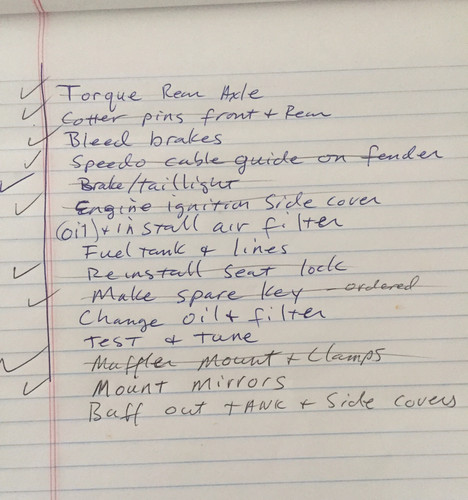 Torque Rear Axle
Cotter pins front + Rear
Bleed brakes
Speedo cable guide on fender
Brake/taillight
Engine ignition Side cover
(oil) + install air filter
Fuel tank & lines
Reinstall seat lock
Make spare key - ordered
Change oil + filter
Test & tune
Muffler Mount + Clamps
Mount mirrors
Buff out tANK + Side covers